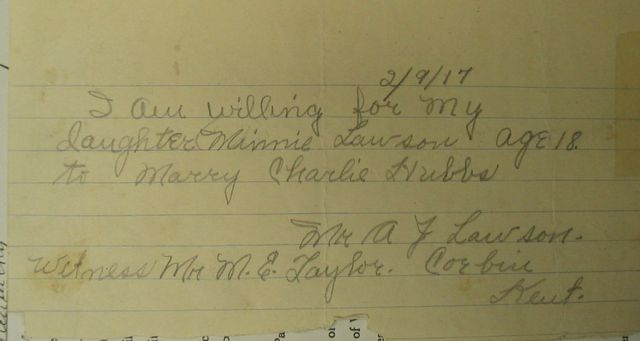 2/9/17
I am willing for My
daughter Minnie Lawson age 18.
to Marry Charlie Hubbs
Mr A J Lawson.
Witness Mr M. E. Taylor. Corbin
Kent.